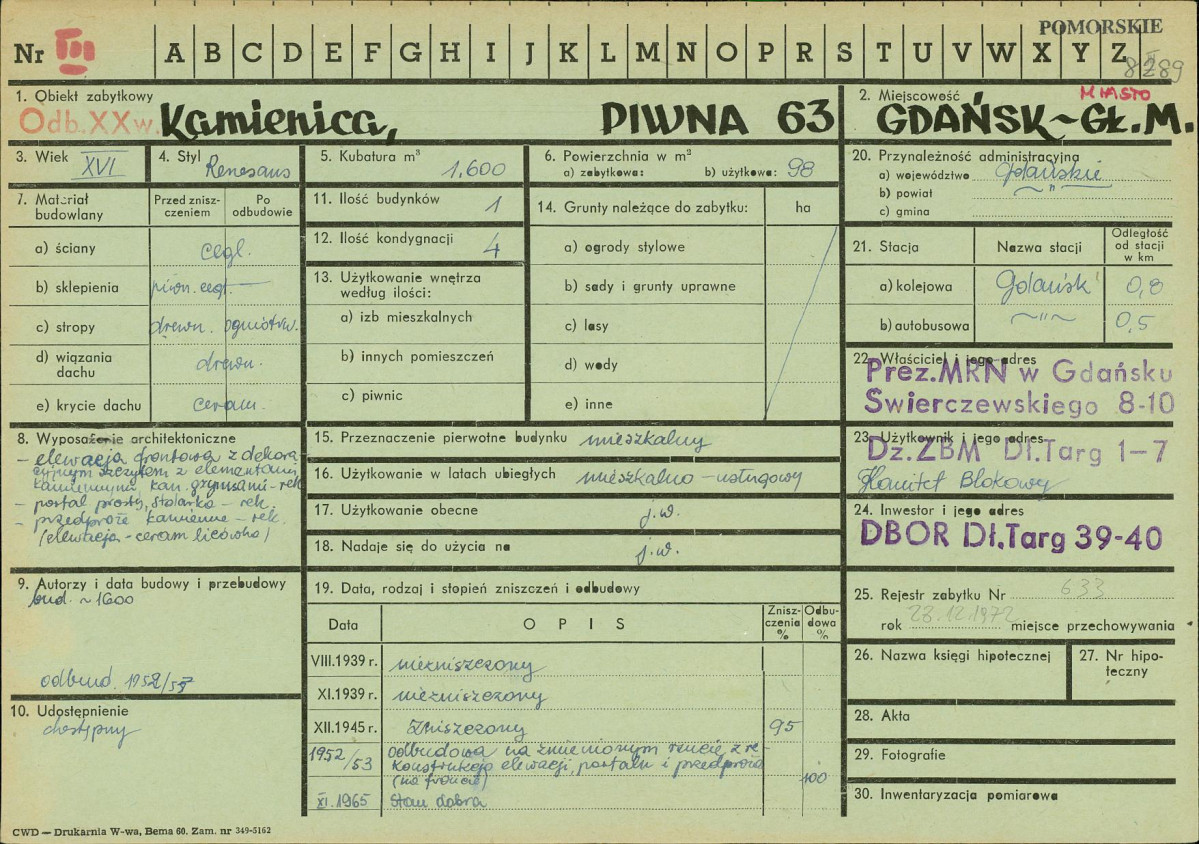 POMORSKIE
Nr III A B C D E F G H I J K L M N O P R S T U V W X Y Z
8289
1. Obiekt zabytkowy
Odb. XX w. Kamienica, PIWNA 63
2. Miejscowość MIASTO
GDAŃSK-GŁ.M.
3. Wiek XVI
4. Styl Renesans
5. Kubatura m³ 1,600
6. Powierzchnia w m²
a) zabytkowa: b) użytkowa: 98
20. Przynależność administracyjna
a) województwo gdańskie
b) powiat ~"~
c) gmina
7. Materiał budowlany
Przed zniszczeniem
Po odbudowie
a) ściany cegl.
b) sklepienia piwn. cegł. —
c) stropy drewn. ogniotrw.
d) wiązania dachu drewn.
e) krycie dachu ceram.
11. Ilość budynków 1
12. Ilość kondygnacji 4
13. Użytkowanie wnętrza według ilości:
a) izb mieszkalnych
b) innych pomieszczeń
c) piwnic
14. Grunty należące do zabytku: ha
a) ogrody stylowe
b) sady i grunty uprawne
c) lasy
d) wody
e) inne
21. Stacja Nazwa stacji Odległość od stacji w km
a) kolejowa Gdańsk 0,8
b) autobusowa ~"~ 0,5
22. Właściciel i jego adres
Prez.MRN w Gdańsku
Swierczewskiego 8-10
23. Użytkownik i jego adres
Dz.ZBM Dł.Targ 1-7
Komitet Blokowy
24. Inwestor i jego adres
DBOR Dł.Targ 39-40
8. Wyposażenie architektoniczne
- elewacja frontowa z dekora
cyjnym szczytem z elementami
kamiennymi kan. gzymsami - rek
- portal prosty, stolarka - rek.
- przedproże kamienne - rek.
(elewacja - ceram licówka)
15. Przeznaczenie pierwotne budynku mieszkalny
16. Użytkowanie w latach ubiegłych mieszkalno - usługowy
17. Użytkowanie obecne j.w.
18. Nadaje się do użycia na j.w.
9. Autorzy i data budowy i przebudowy
bud. ~ 1600
odbud. 1952/53
10. Udostępnienie
dostępny
19. Data, rodzaj i stopień zniszczeń i odbudowy
Data OPIS Zniszczenia % Odbudowa %
VIII.1939 r. niezniszczony
XI.1939 r. niezniszczony
XII.1945 r. Zniszczony 95
1952/53 odbudowa na zmienionym rzucie z re-
konstrukcją elewacji, portalu i przedproża
(na froncie) 100
XI.1965 Stan dobra
25. Rejestr zabytku Nr 633
rok 23.12.1972 miejsce przechowywania
26. Nazwa księgi hipotecznej
27. Nr hipoteczny
28. Akta
29. Fotografie
30. Inwentaryzacja pomiarowa
CWD — Drukarnia W-wa, Bema 60. Zam. nr 349-5162